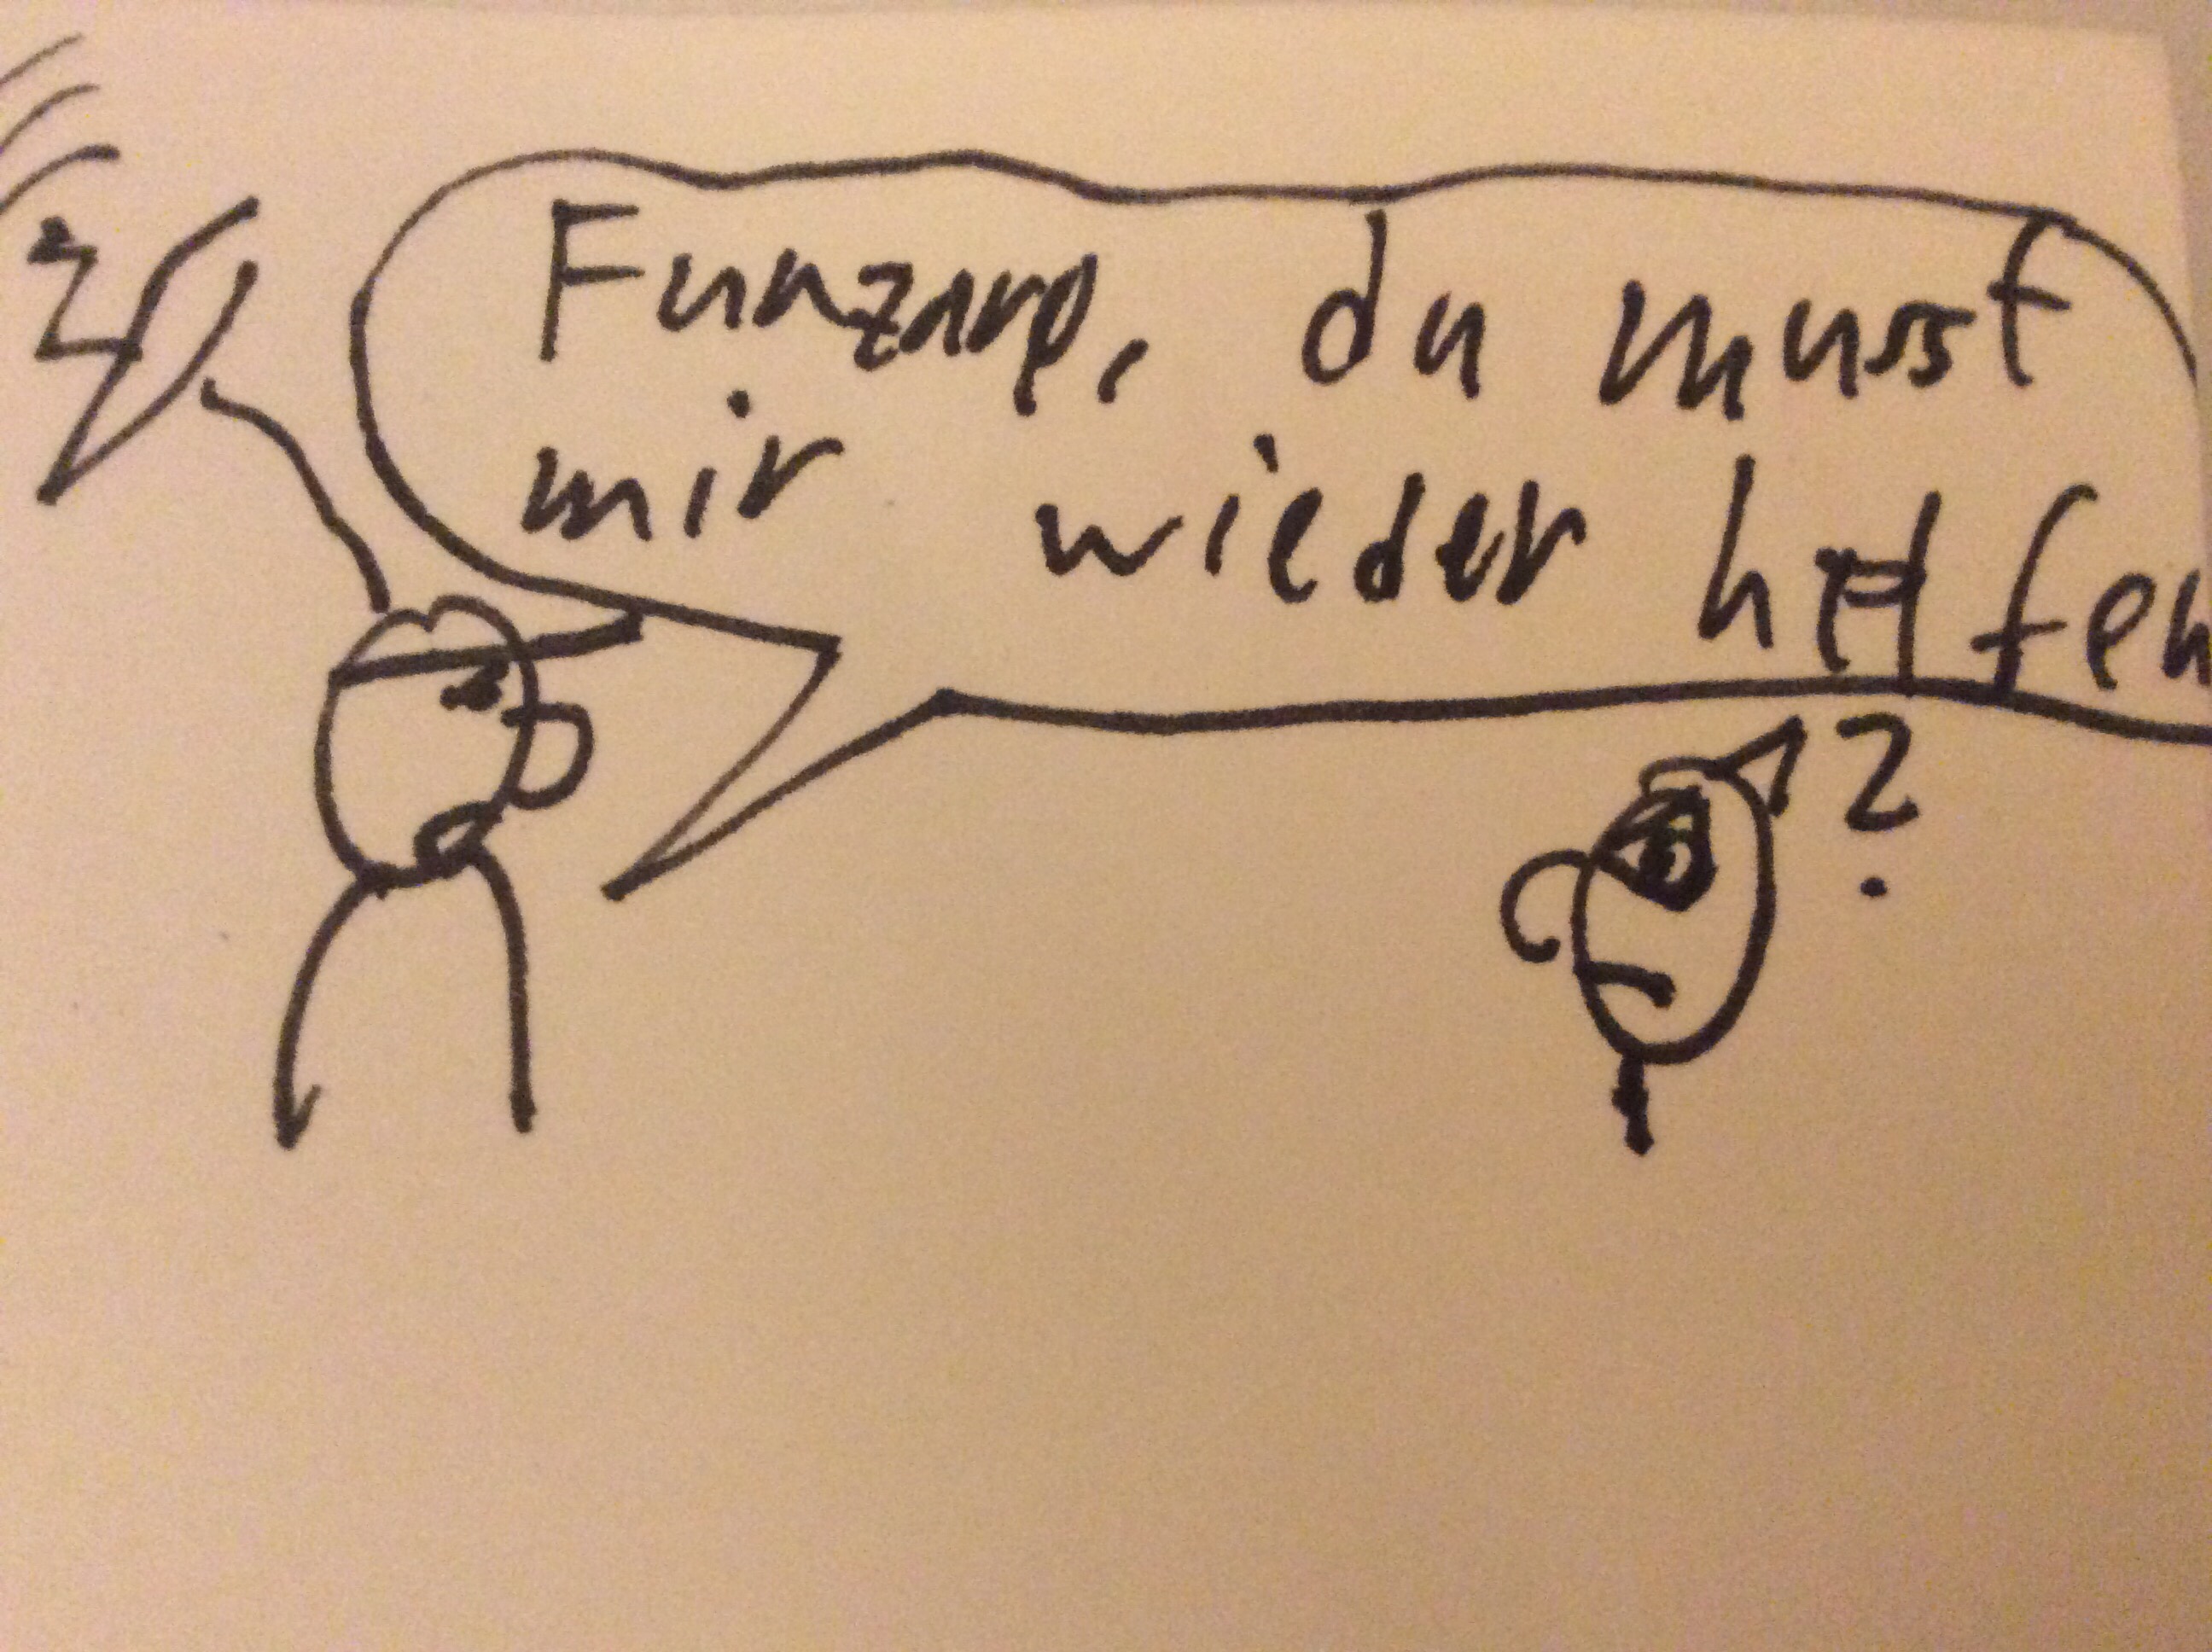 Funzarp, du musst
mir wieder helfen
?